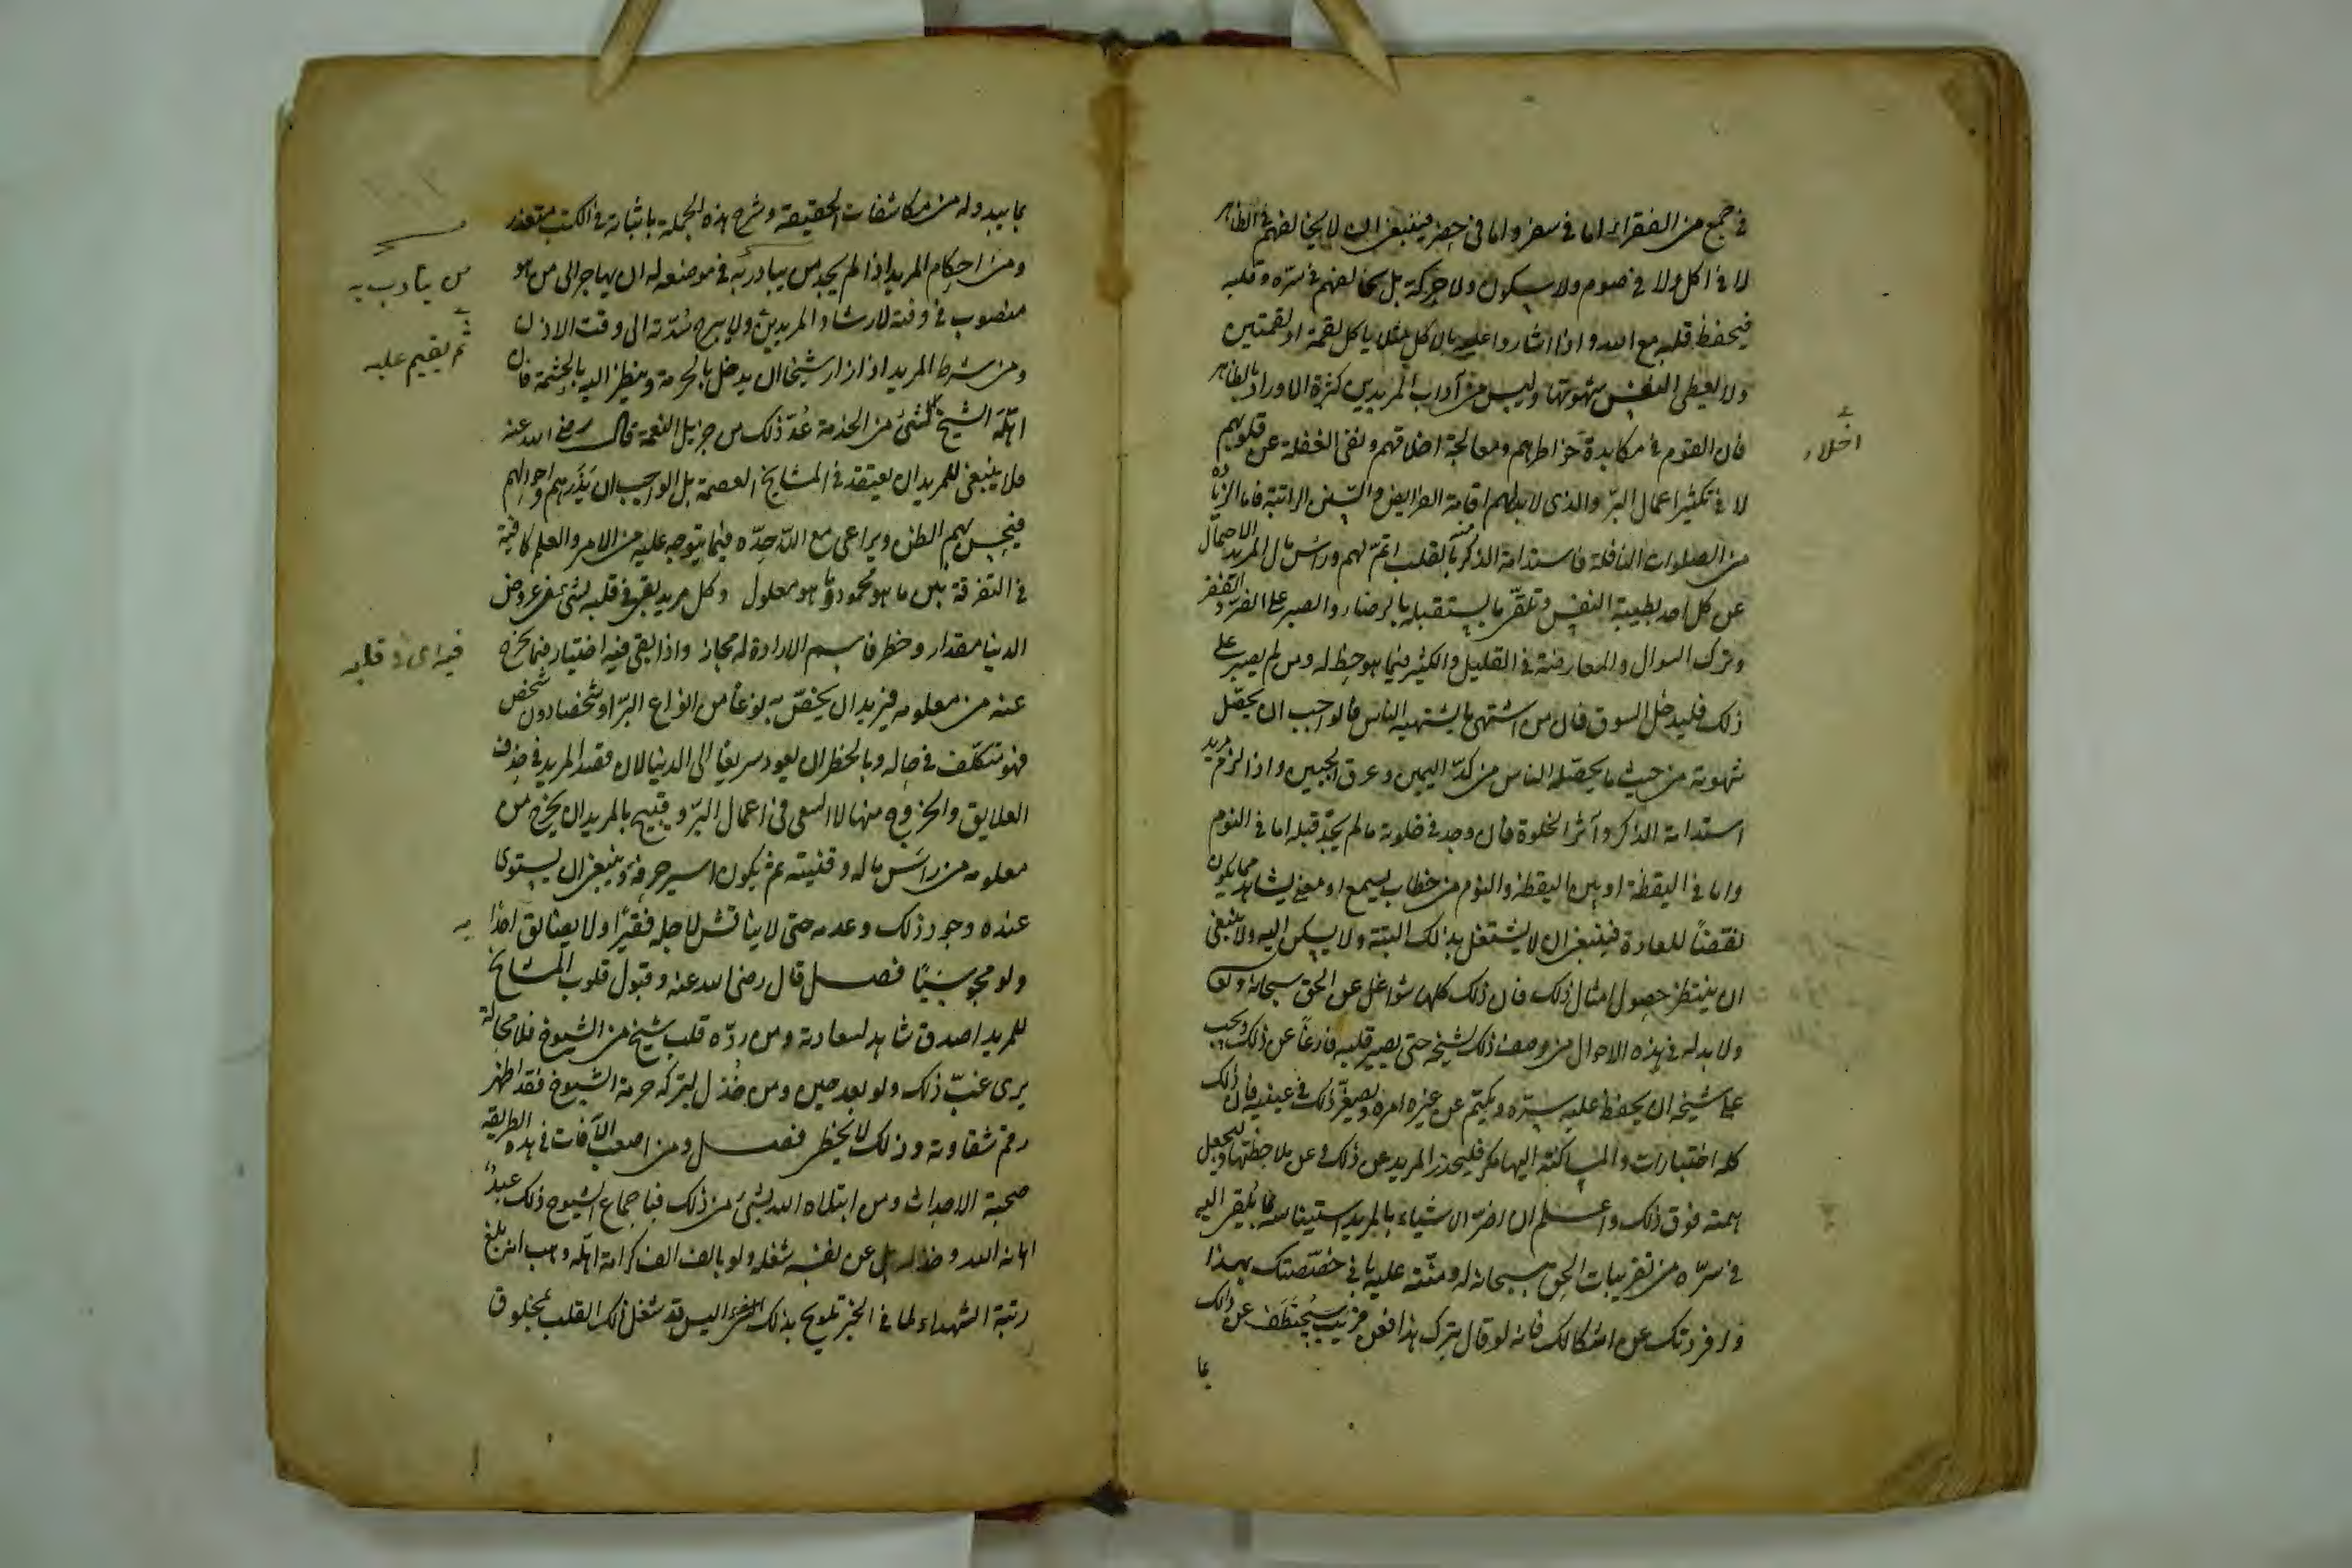 في جمع من الفقراء اما في سفر واما في حضر فينبغي ان لا يخالفهم في الظاهر
لا في اكل ولا في صوم ولا سكون ولا حركة بل يخالفهم في سره وقلبه
فيحفظ قلبه مع الله واذا اشاروا عليه بالاكل مثلا ياكل لقمة او لقمتين
ولا يعطى النفس شهوتها وليس من آداب المريدين كثرة الاوراد بالظاهر
فان القوم في مكابدة خواطرهم ومعالجة اخلاقهم ونفى الغفلة عن قلوبهم
اخلاء
لا في تكثير اعمال البر والذى لا بد لهم اقامة الفرايض والسنن الراتبة فاما الزيادة
من الصلوات النافلة فاستدامة الذكر منه بالقلب اتم لهم وراس مال المريد الاحتمال
عن كل احد بطيبة النفس وتلقى ما يستقبله بالرضاء والصبر على الضر والفقر
وترك السوال والمعارضة في القليل والكثير فيما هو حظ له ومن لم يصبر على
ذلك فليدخل السوق فان من اشتهى ما يشتهيه الناس فالواجب ان يحصل
شهوته من حيث ما يحصله الناس من كد اليمين وعرق الجبين واذا لزم مريد
استدامة الذكر وآثر الخلوة فان وجد في خلوته ما لم يجد قبله اما في النوم
واما في اليقظة او بين اليقظة والنوم من خطاب يسمع او معنى يشاهد مما يكون
نقضًا للعادة فينبغى ان لا يشتغل بذلك البتة ولا يسكن اليه ولا ينبغى
ان ينتظر حصول امثال ذلك فان ذلك كلها شواغل عن الحق سبحانه وتعالى
ولا بد له في هذه الاحوال من وصف ذلك لشيخه حتى يصير قلبه فارغا عن ذلك ويجب
على شيخه ان يحفظ عليه سره ويكتم عن غيره امره ويصغر ذلك في عينيه فان ذلك
كله اختبارات والمساكنة اليها مكر فليحذر المريد عن ذلك وعن ملاحظتها وليجعل
همته فوق ذلك واعلم ان اضر الاشياء بالمريد استيناسه بما يلقى اليه
في سره من تقريبات الحق سبحانه له ومنته عليه بانى خصصتك بهذا
وافردتك عن اشكالك فانه لو قال بترك هذا فعن قريب سيختطف عن ذلك
بما
بما يبدو له من مكاشفات الحقيقة وشرح هذه الجملة باثباته في الكتب متعذر
ومن احكام المريد اذا لم يجد من يتادب به في موضعه ان يهاجر الى من هو
من يتادب به
منصوب في وقته لارشاد المريدين ولا يبرح سدته الى وقت الاذن
ثم يقيم عليه
ومن شرط المريد اذا زار شيخا ان يدخل بالحرمة وينظر اليه بالحشمة فان
اهله الشيخ لشئ من الخدمة عد ذلك من جزيل النعمة قال رضى الله عنه
ولا ينبغى للمريد ان يعتقد في المشايخ العصمة بل الواجب ان يذرهم واحوالهم
فيحسن بهم الظن ويراعى مع الله حده فيما يتوجه عليه من الامر والعلم كافيه
في التفرقة بين ما هو محمود وما هو معلول وكل مريد بقى في قلبه لشئ من عروض
الدنيا مقدار وخطر فاسم الارادة له مجاز واذا بقى فيه اختيار فيما يخرج
فيه اى في قلبه
عنه من معلومه فيريد ان يخص به نوعا من انواع البر او شخصا دون شخص
فهو متكلف في حاله وبالخطر ان يعود سريعا الى الدنيا لان قصد المريد في حذف
العلايق والخروج منها لا السعى في اعمال البر وقبيح بالمريد ان يخرج من
معلومه من راس ماله وقنيته ثم يكون اسير حرفة وينبغى ان يستوى
عنده وجود ذلك وعدمه حتى لا يناقش لاجله فقيرا ولا يضايق احدًا
به
ولو مجوسيًا فصل قال رضى الله عنه وقبول قلوب المشايخ
للمريد اصدق شاهد لسعادته ومن رده قلب شيخ من الشيوخ فلا محالة
يرى غب ذلك ولو بعد حين ومن خذل بترك حرمة الشيوخ فقد اظهر
رقم شقاوته وذلك لا يخطى فصل ومن اصعب الآفات في هذه الطريقة
صحبة الاحداث ومن ابتلاه الله بشئ من ذلك فباجماع الشيوخ ذلك عبد
اهانه الله وخذله بل عن نفسه شغله ولو بالف الف كرامة اهله وهب انه بلغ
رتبة الشهداء لما في الخبر تلويح بذلك اليس قد شغل ذلك القلب بمخلوق